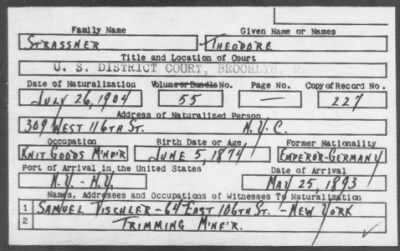 Family Name Given Name or Names
STRASSNER THEODORE
Title and Location of Court
U. S. DISTRICT COURT, BROOKLYN,
Date of Naturalization Volume or Bundle No. Page No. Copy of Record No.
JULY 26, 1904 55 — 227
Address of Naturalized Person
309 WEST 116TH ST. N.Y.C.
Occupation Birth Date or Age Former Nationality
KNIT GOODS M'NF'R JUNE 5, 1874 EMPEROR-GERMANY
Port of Arrival in the United States Date of Arrival
N.Y. - N.Y. MAY 25, 1893
Names, Addresses and Occupations of Witnesses To Naturalization
1 SAMUEL TISCHLER - 64 EAST 106TH ST. - NEW YORK
2 TRIMMING M'NF'R.